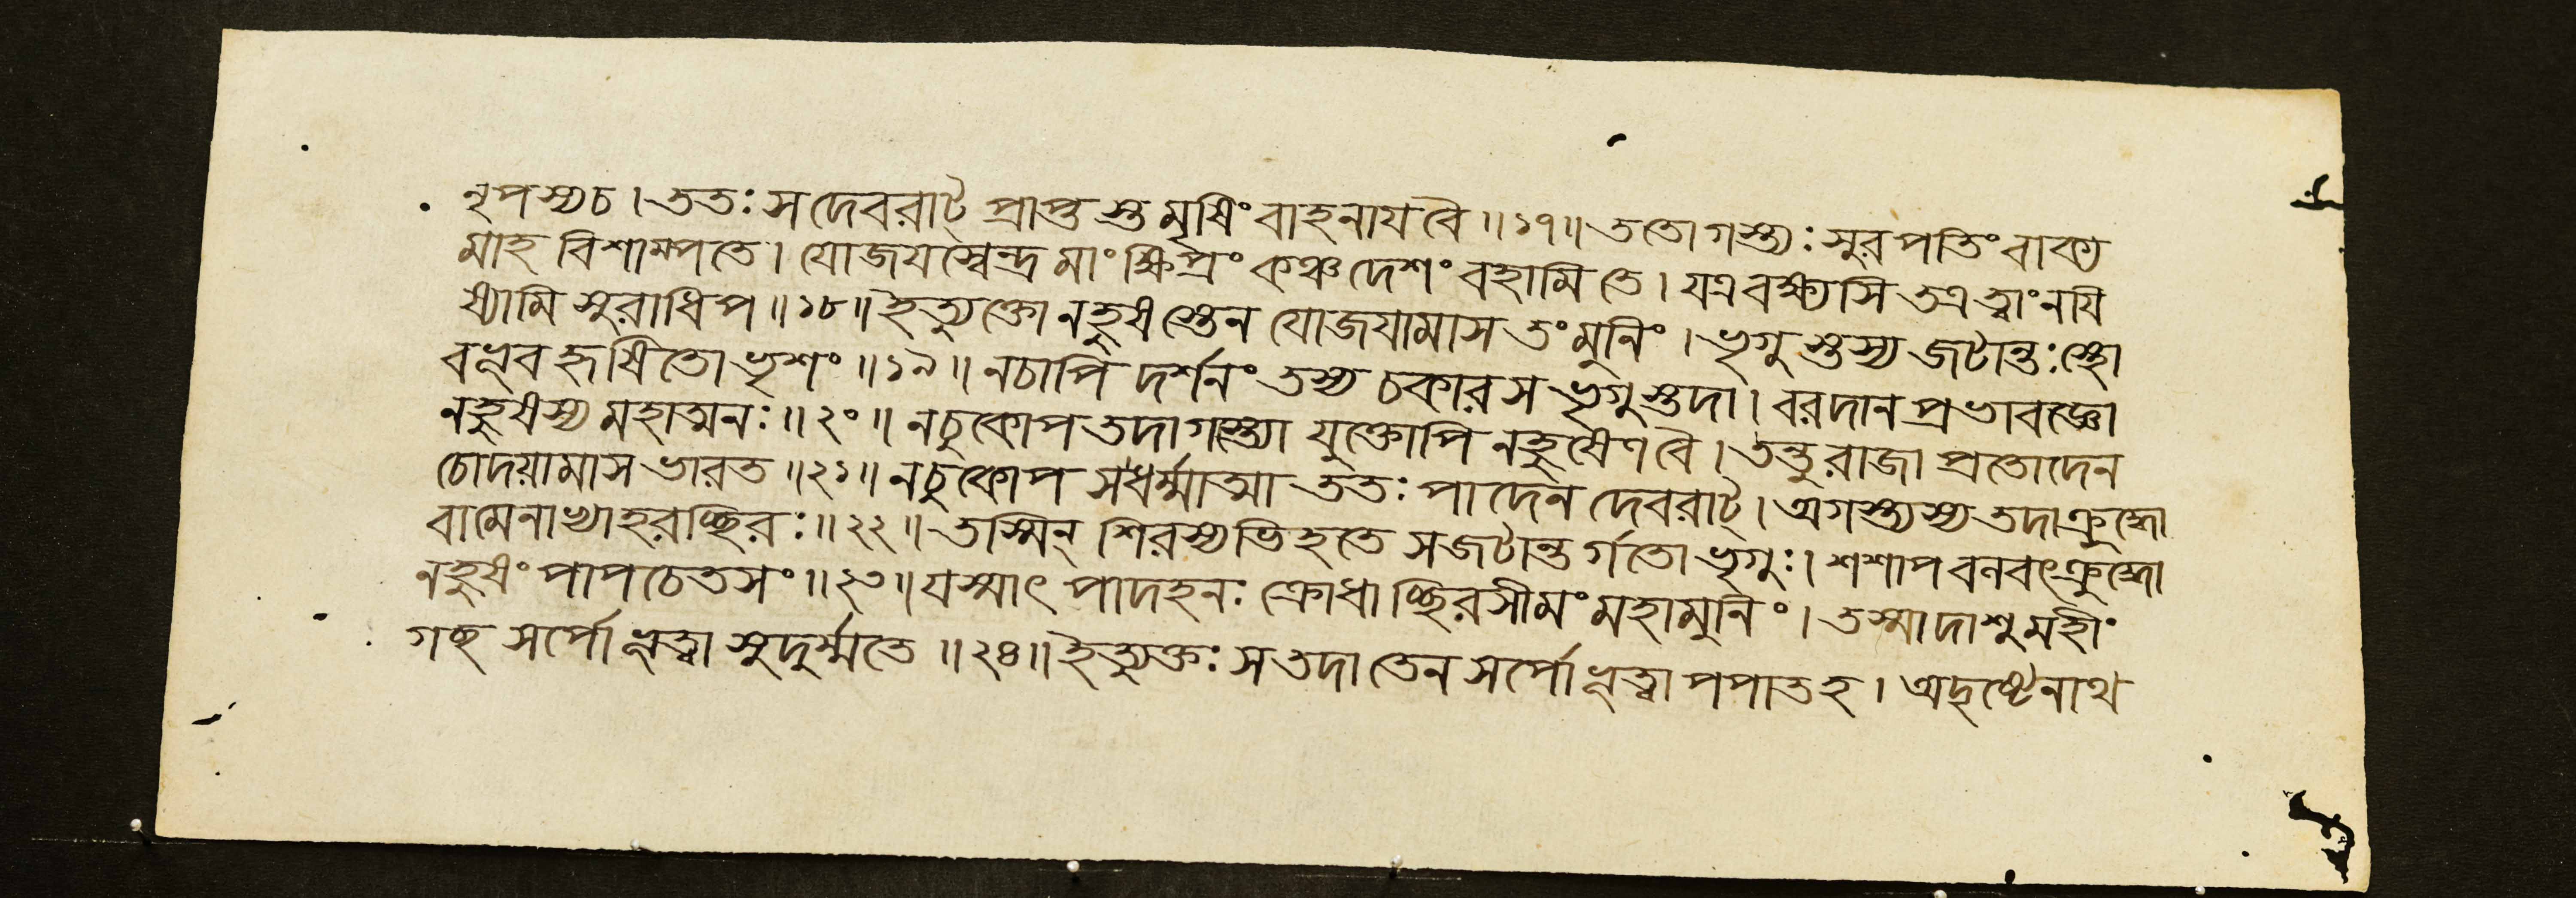 নৃপস্য চ । ততঃ স দেবরাট্ প্রাপ্তস্তমৃষিং বাহনায বৈ ॥ ১৭ ॥ ততোগস্ত্যঃ সুরপতিং বাক্য
মাহ বিশাম্পতে । যোজযস্বেন্দ্র মাং ক্ষিপ্রং কঞ্চ দেশং বহামি তে । যত্র বক্ষ্যসি তত্র ত্বাং নযি
ষ্যামি সুরাধিপ ॥ ১৮ ॥ ইত্যুক্তো নহুষস্তেন যোজযামাস তং মুনিং । ভৃগুস্তস্য জটান্তঃস্থো
বভূব হৃষিতো ভৃশং ॥ ১৯ ॥ ন চাপি দর্শনং তস্য চকার স ভৃগুস্তদা । বরদানপ্রভাবজ্ঞো
নহুষস্য মহাত্মনঃ ॥ ২০ ॥ ন চুকোপ তদাগস্ত্যো যুক্তোপি নহুষেণ বৈ । তন্তু রাজা প্রতোদেন
চোদয়ামাস ভারত ॥ ২১ ॥ ন চুকোপ স ধর্ম্মাত্মা ততঃ পাদেন দেবরাট্ । অগস্ত্যস্য তদা ক্রুদ্ধো
বামেনাভ্যাহরচ্ছিরঃ ॥ ২২ ॥ তস্মিন্ শিরস্যভিহতে স জটান্তর্গতো ভৃগুঃ । শশাপ বলবৎক্রুদ্ধো
নহুষং পাপচেতসং ॥ ২৩ ॥ যস্মাৎ পাদহনঃ ক্রোধাচ্ছিরসীমং মহামুনিং । তস্মাদাশু মহীং
গচ্ছ সর্পো ভূত্বা সুদুর্ম্মতে ॥ ২৪ ॥ ইত্যুক্তঃ স তদা তেন সর্পো ভূত্বা পপাত হ । অদৃষ্টেনাথ